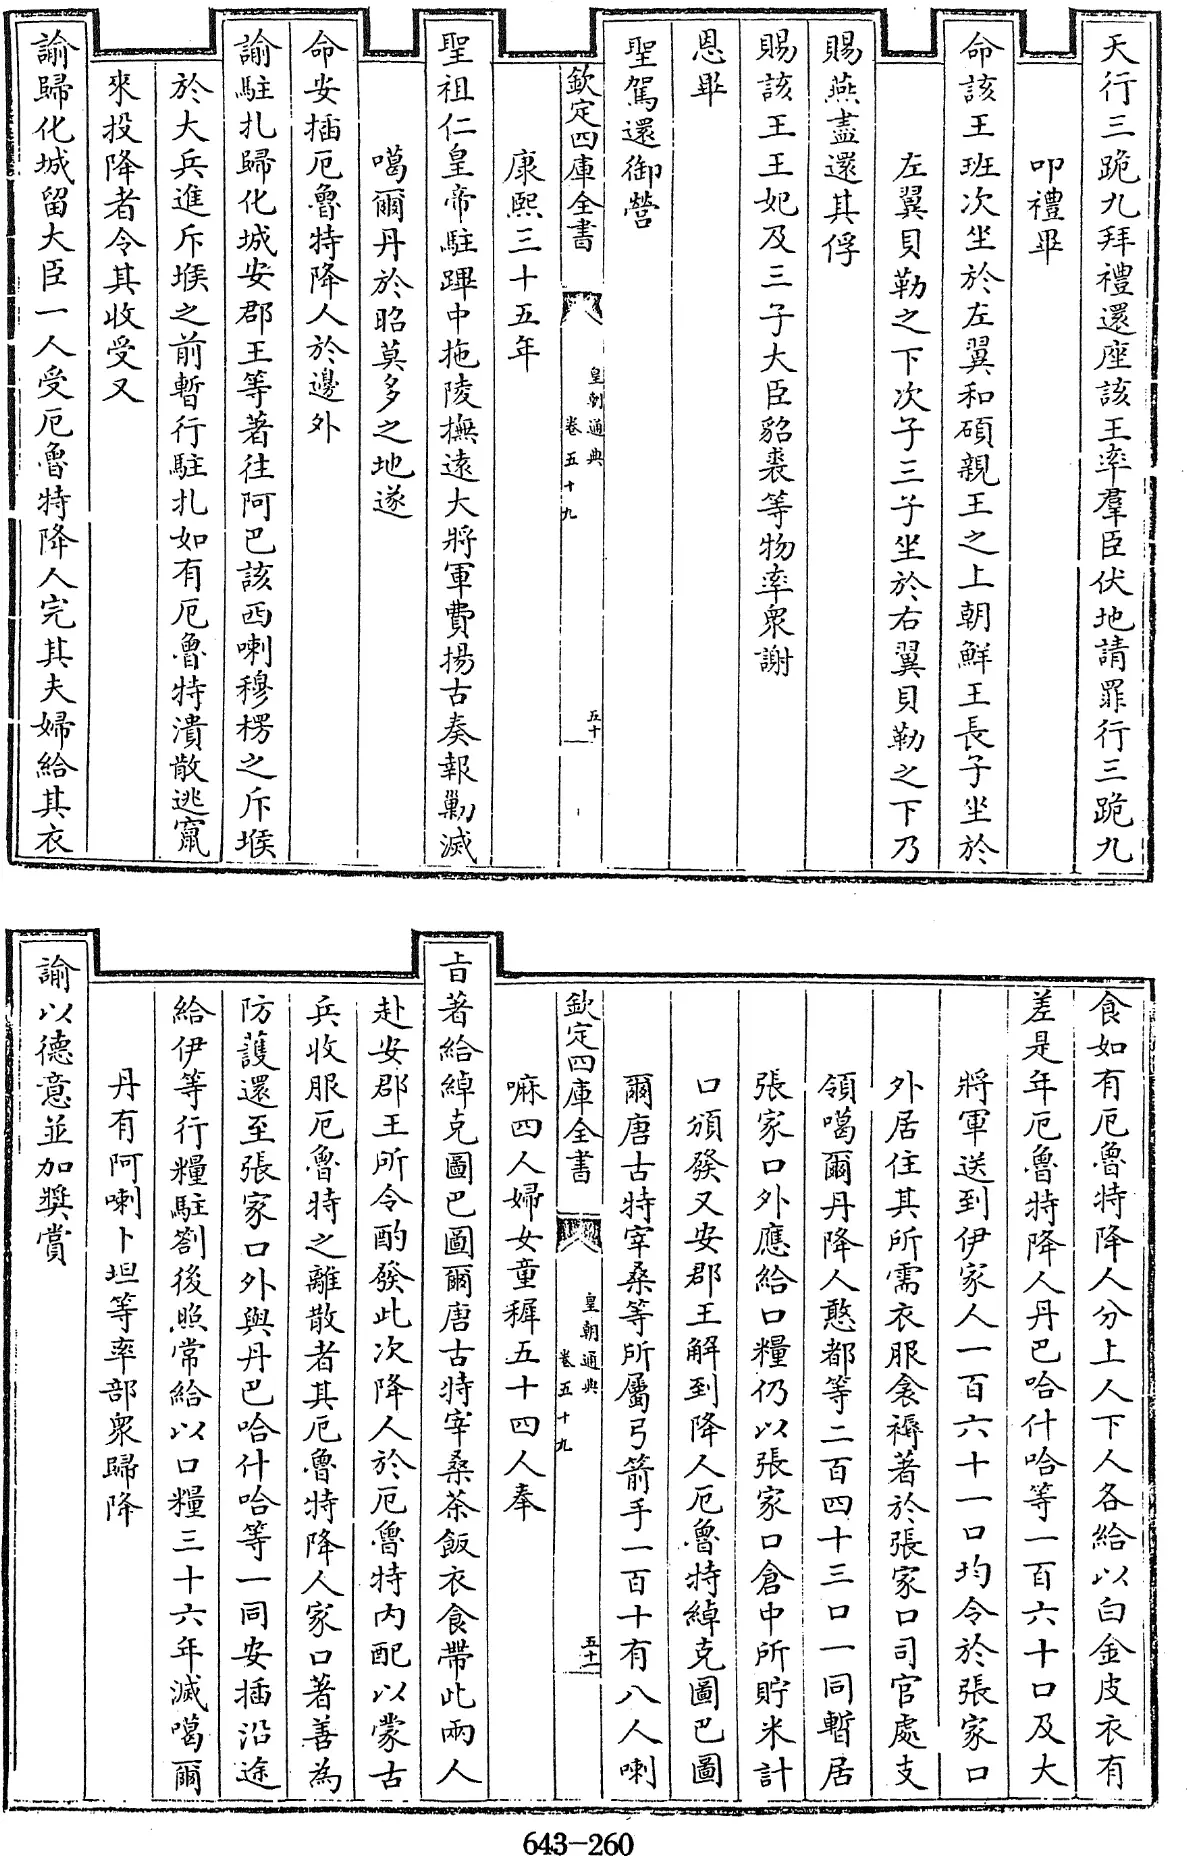 天行三跪九拜禮還座該王率羣臣伏地請罪行三跪九
叩禮畢
命該王班次坐於左翼和碩親王之上朝鮮王長子坐於
左翼貝勒之下次子三子坐於右翼貝勒之下乃
賜燕盡還其俘
賜該王王妃及三子大臣貂裘等物率衆謝
恩畢
聖駕還御營
欽定四庫全書
皇朝通典
卷五十九
五十
康熙三十五年
聖祖仁皇帝駐蹕中拖陵撫遠大將軍費揚古奏報勦滅
噶爾丹於昭莫多之地遂
命安插厄魯特降人於邊外
諭駐扎歸化城安郡王等著往阿巴該西喇穆楞之斥堠
於大兵進斥堠之前暫行駐扎如有厄魯特潰散逃竄
來投降者令其收受又
諭歸化城留大臣一人受厄魯特降人完其夫婦給其衣
食如有厄魯特降人分上人下人各給以白金皮衣有
差是年厄魯特降人丹巴哈什哈等一百六十口及大
將軍送到伊家人一百六十一口均令於張家口
外居住其所需衣服衾褥著於張家口司官處支
領噶爾丹降人憨都等二百四十三口一同暫居
張家口外應給口糧仍以張家口倉中所貯米計
口頒發又安郡王解到降人厄魯特綽克圖巴圖
爾唐古特宰桑等所屬弓箭手一百十有八人喇
欽定四庫全書
皇朝通典
卷五十九
五十一
嘛四人婦女童穉五十四人奉
旨著給綽克圖巴圖爾唐古特宰桑茶飯衣食帶此兩人
赴安郡王所令酌發此次降人於厄魯特內配以蒙古
兵收服厄魯特之離散者其厄魯特降人家口著善為
防護還至張家口外與丹巴哈什哈等一同安插沿途
給伊等行糧駐劄後照常給以口糧三十六年滅噶爾
丹有阿喇卜坦等率部衆歸降
諭以德意並加獎賞
643-260